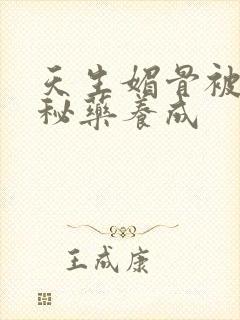 天生媚骨被
秘药养成
王成康